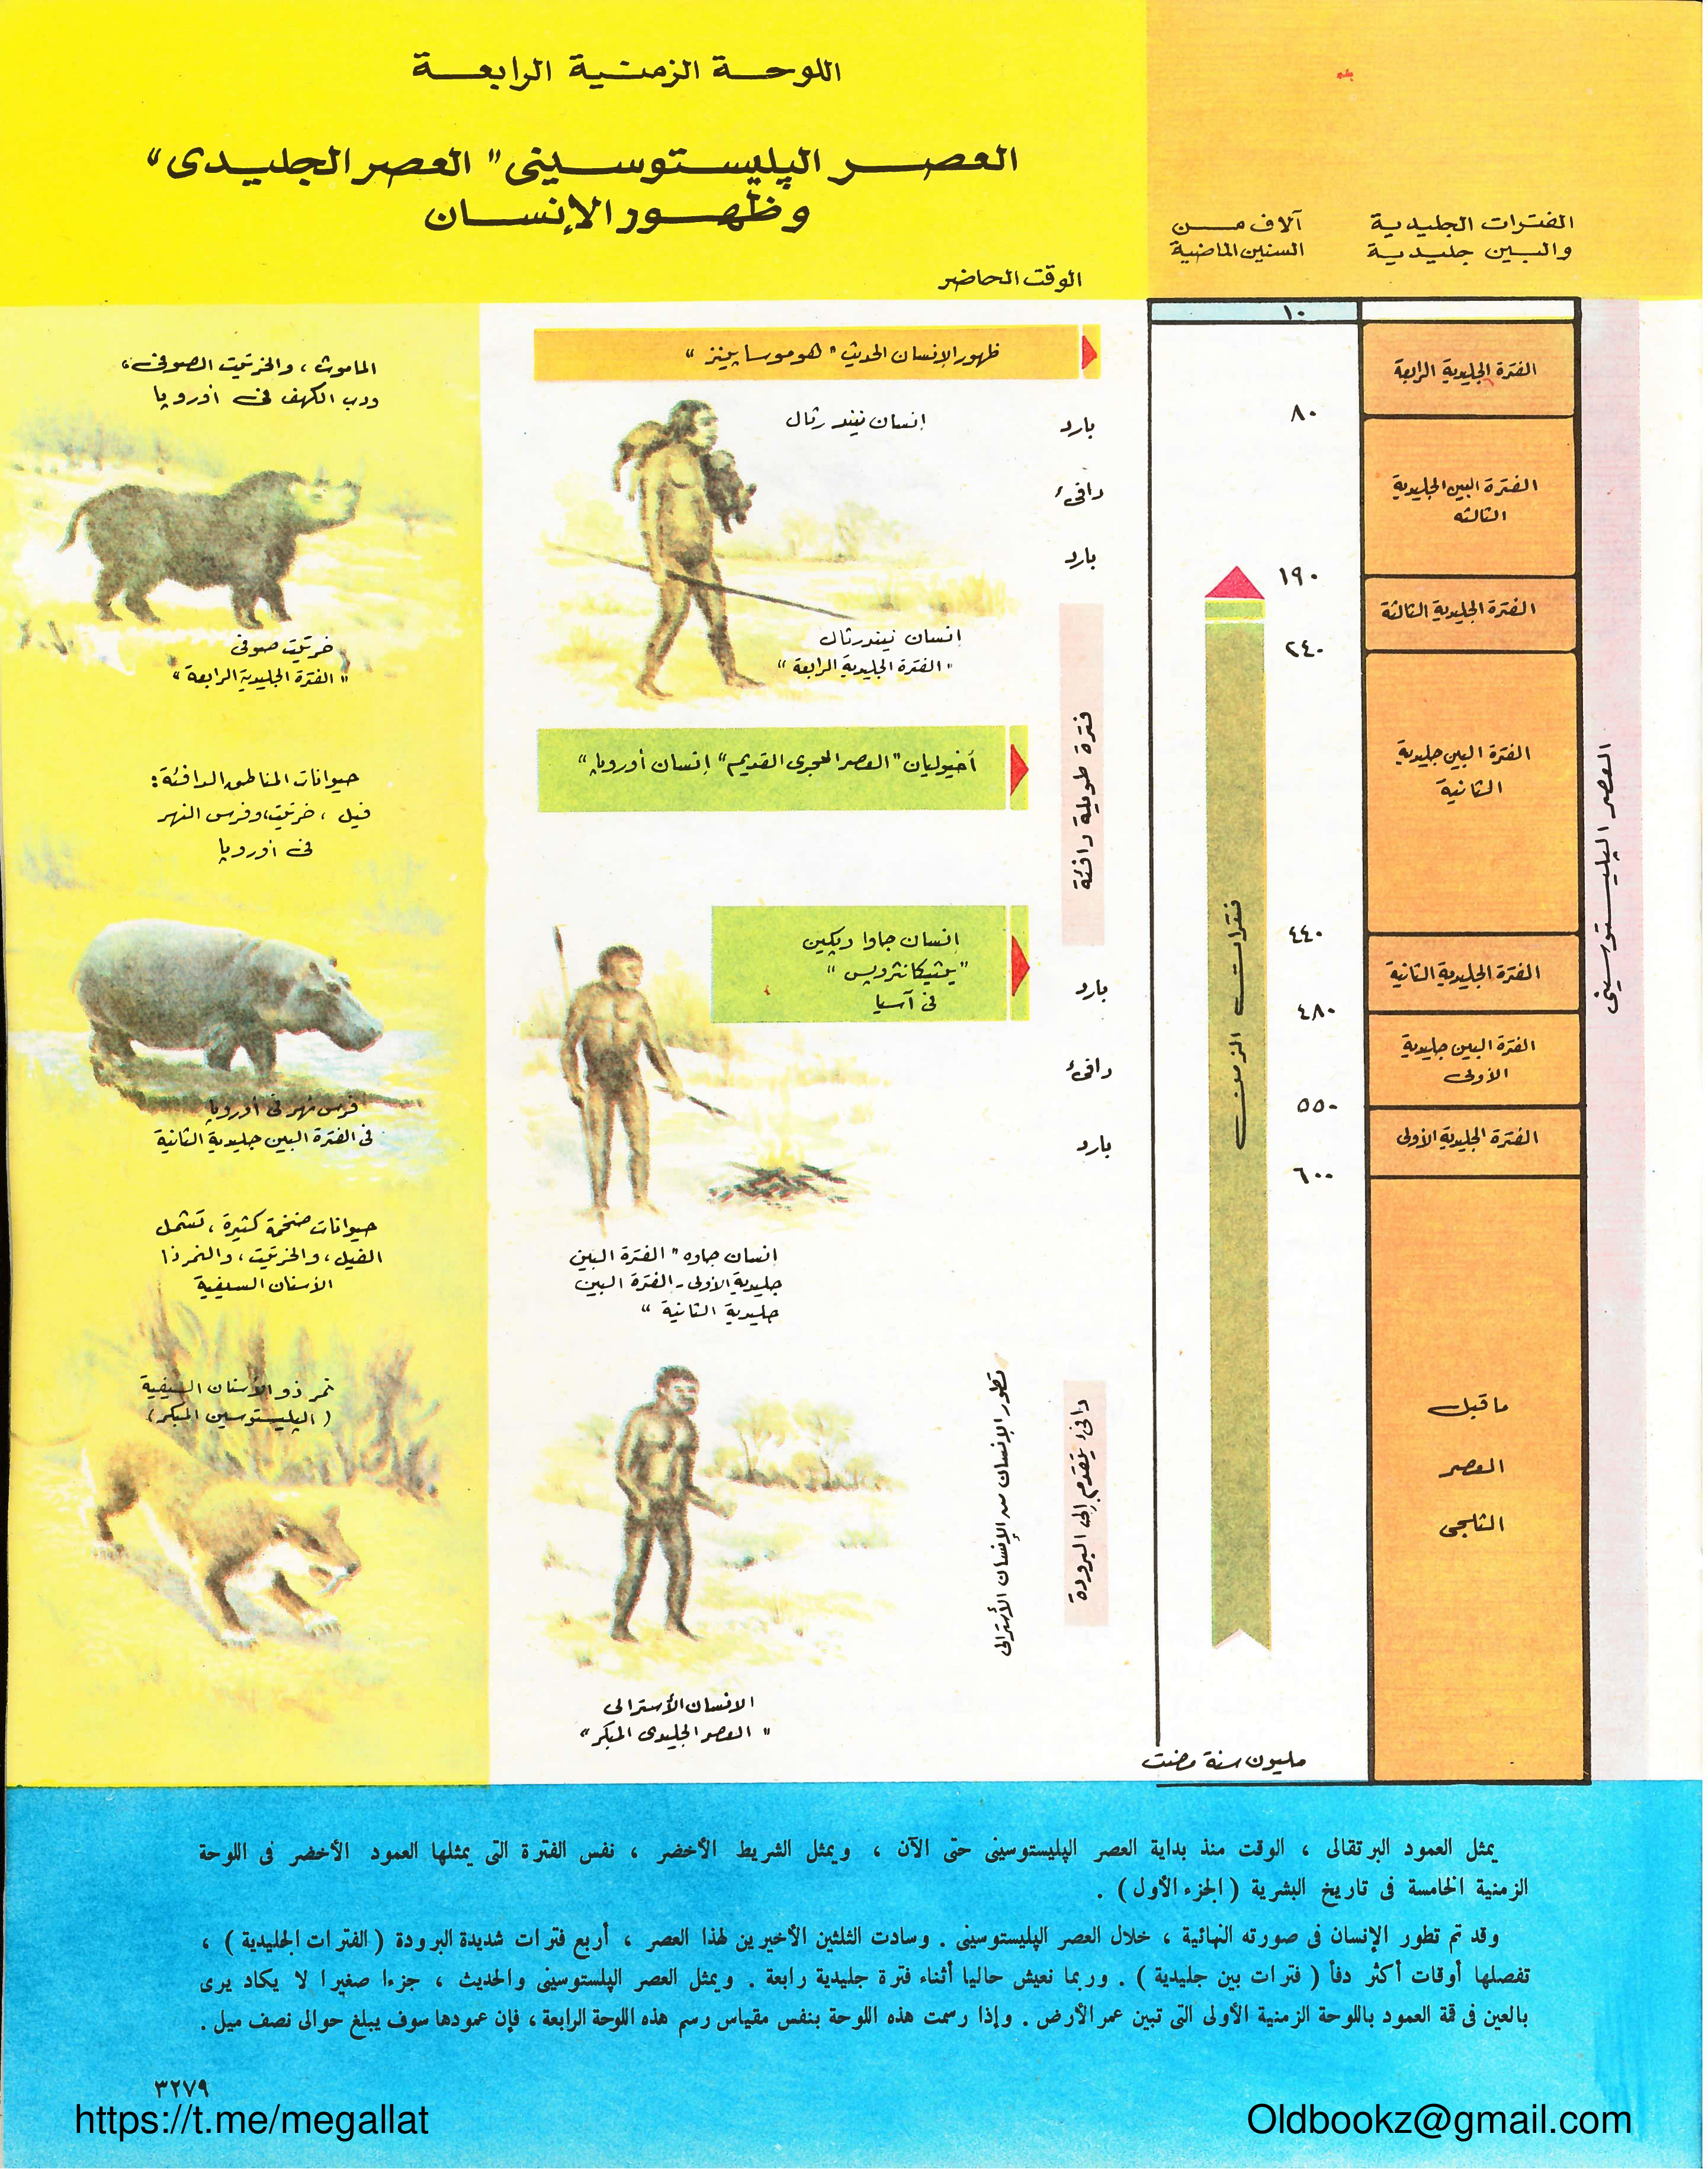 اللوحة الزمنية الرابعة
العصر الپليستوسينى "العصر الجليدى"
وظهور الإنسان
الوقت الحاضر
الفترات الجليدية
والبين جليدية
آلاف من
السنين الماضية
١٠
الفترة الجليدية الرابعة
٨٠
الفترة البين الجليدية
الثالثه
١٩٠
الفترة الجليدية الثالثة
٢٤٠
الفترة البين جليدية
الثانية
٤٤٠
الفترة الجليدية الثانية
٤٨٠
الفترة البين جليدية
الأولى
٥٥٠
الفترة الجليدية الأولى
٦٠٠
ما قبل
العصر
الثلجى
مليون سنة مضت
العصر الپليستوسينى
فترات الزمن
ظهور الإنسان الحديث "هوموساپينز"
بارد
دافىء
بارد
فترة طويلة دافئة
بارد
دافىء
بارد
دافىء يتقدم إلى البرودة
تطور الإنسان من الإنسان الأسترالى
إنسان نيندرثال
إنسان نيندرثال
"الفترة الجليدية الرابعة"
أخيوليان "العصر الحجرى القديم" إنسان أوروپا"
إنسان جاوا وپكين
"پيثيكانثروپس"
فى آسيا
إنسان جاوه "الفترة البين
جليدية الأولى - الفترة البين
جليدية الثانية"
الإنسان الأسترالى
"العصر الجليدى المبكر"
الماموث، والخرتيت الصوفى،
ودب الكهف فى أوروپا
خرتيت صوفى
"الفترة الجليدية الرابعة"
حيوانات المناطق الدافئة:
فيل، خرتيت، وفرس النهر
فى أوروپا
فرس نهر فى أوروپا
فى الفترة البين جليدية الثانية
حيوانات ضخمة كثيرة، تشمل
الفيل، والخرتيت، والنمر ذا
الأسنان السيفية
نمر ذو الأسنان السيفية
(الپليستوسين المبكر)
يمثل العمود البرتقالى ، الوقت منذ بداية العصر الپليستوسينى حتى الآن ، ويمثل الشريط الأخضر ، نفس الفترة التى يمثلها العمود الأخضر فى اللوحة
الزمنية الخامسة فى تاريخ البشرية ( الجزء الأول ) .
وقد تم تطور الإنسان فى صورته النهائية ، خلال العصر الپليستوسينى . وسادت الثلثين الأخيرين لهذا العصر ، أربع فترات شديدة البرودة ( الفترات الجليدية ) ،
تفصلها أوقات أكثر دفأ ( فترات بين جليدية ) . وربما نعيش حاليا أثناء فترة جليدية رابعة . ويمثل العصر الپلستوسينى والحديث ، جزءا صغيرا لا يكاد يرى
بالعين فى قمة العمود باللوحة الزمنية الأولى التى تبين عمر الأرض . وإذا رسمت هذه اللوحة بنفس مقياس رسم هذه اللوحة الرابعة ، فإن عمودها سوف يبلغ حوالى نصف ميل .
٣٢٧٩
https://t.me/megallat
Oldbookz@gmail.com